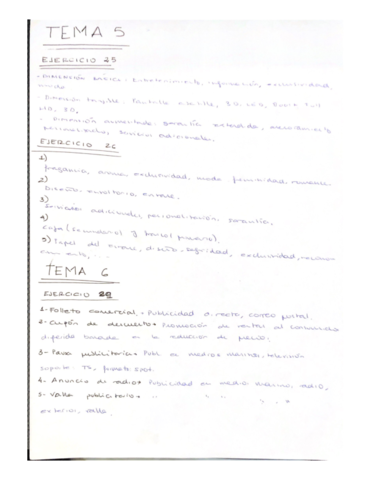 TEMA 5
EJERCICIO 25
- Dimensión básica: Entretenimiento, información, exclusividad,
- Dimensión tangible: Pantalla
- Dimensión aumentada: garantía extendida,
personalizados, servicios adicionales.
EJERCICIO 26
1)
fragancia, aroma, exclusividad, moda, feminidad,
2)
Diseño, envoltorio, envase,
3)
Servicios adicionales, personalización, garantía,
4)
Caja (secundario) y
5) Papel del envase, diseño, seguridad, exclusividad,
TEMA 6
EJERCICIO 20
1- Folleto comercial • Publicidad directa, correo postal.
2- Cupón de descuento • Promoción de ventas al consumidor
dirigida basada en la reducción de precio.
3- Pausa publicitaria • Publ. en medios masivos, televisión
soporte: TV, formato spot.
4. Anuncio de radio • Publicidad en medio masivo, radio,
5- Valla publicitaria • " " " " , " , "
exterior, valla.